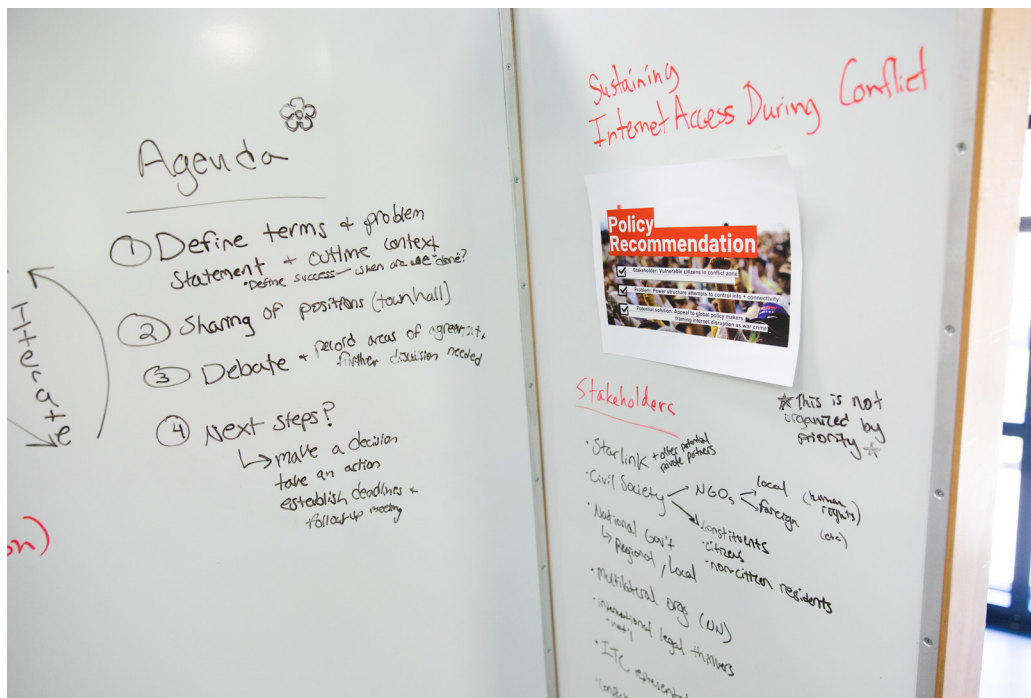 Agenda
① Define terms + problem
statement + outline context
*Define success — when are we "done"?
② Sharing of positions (townhall)
③ Debate + record areas of agreement,
further discussion needed
④ Next steps?
↳ make a decision
take an action
establish deadlines +
follow up meeting
Iterate
on)
Sustaining
Internet Access During Conflict
Policy
Recommendation
Stakeholder: Vulnerable citizens in conflict zone
Problem: Power structure attempts to control info + connectivity
Potential solution: Appeal to global policy makers,
framing internet disruption as war crime
Stakeholders
* This is not
organized by
priority *
• Starlink + other potential
private partners
• Civil Society → NGOs local (human
rights)
foreign (etc)
constituents
• citizens
• non-citizen residents
• National Gov't
↳ Regional, Local
• Multilateral orgs (UN)
• international legal thinkers
• nat'l
• ITC